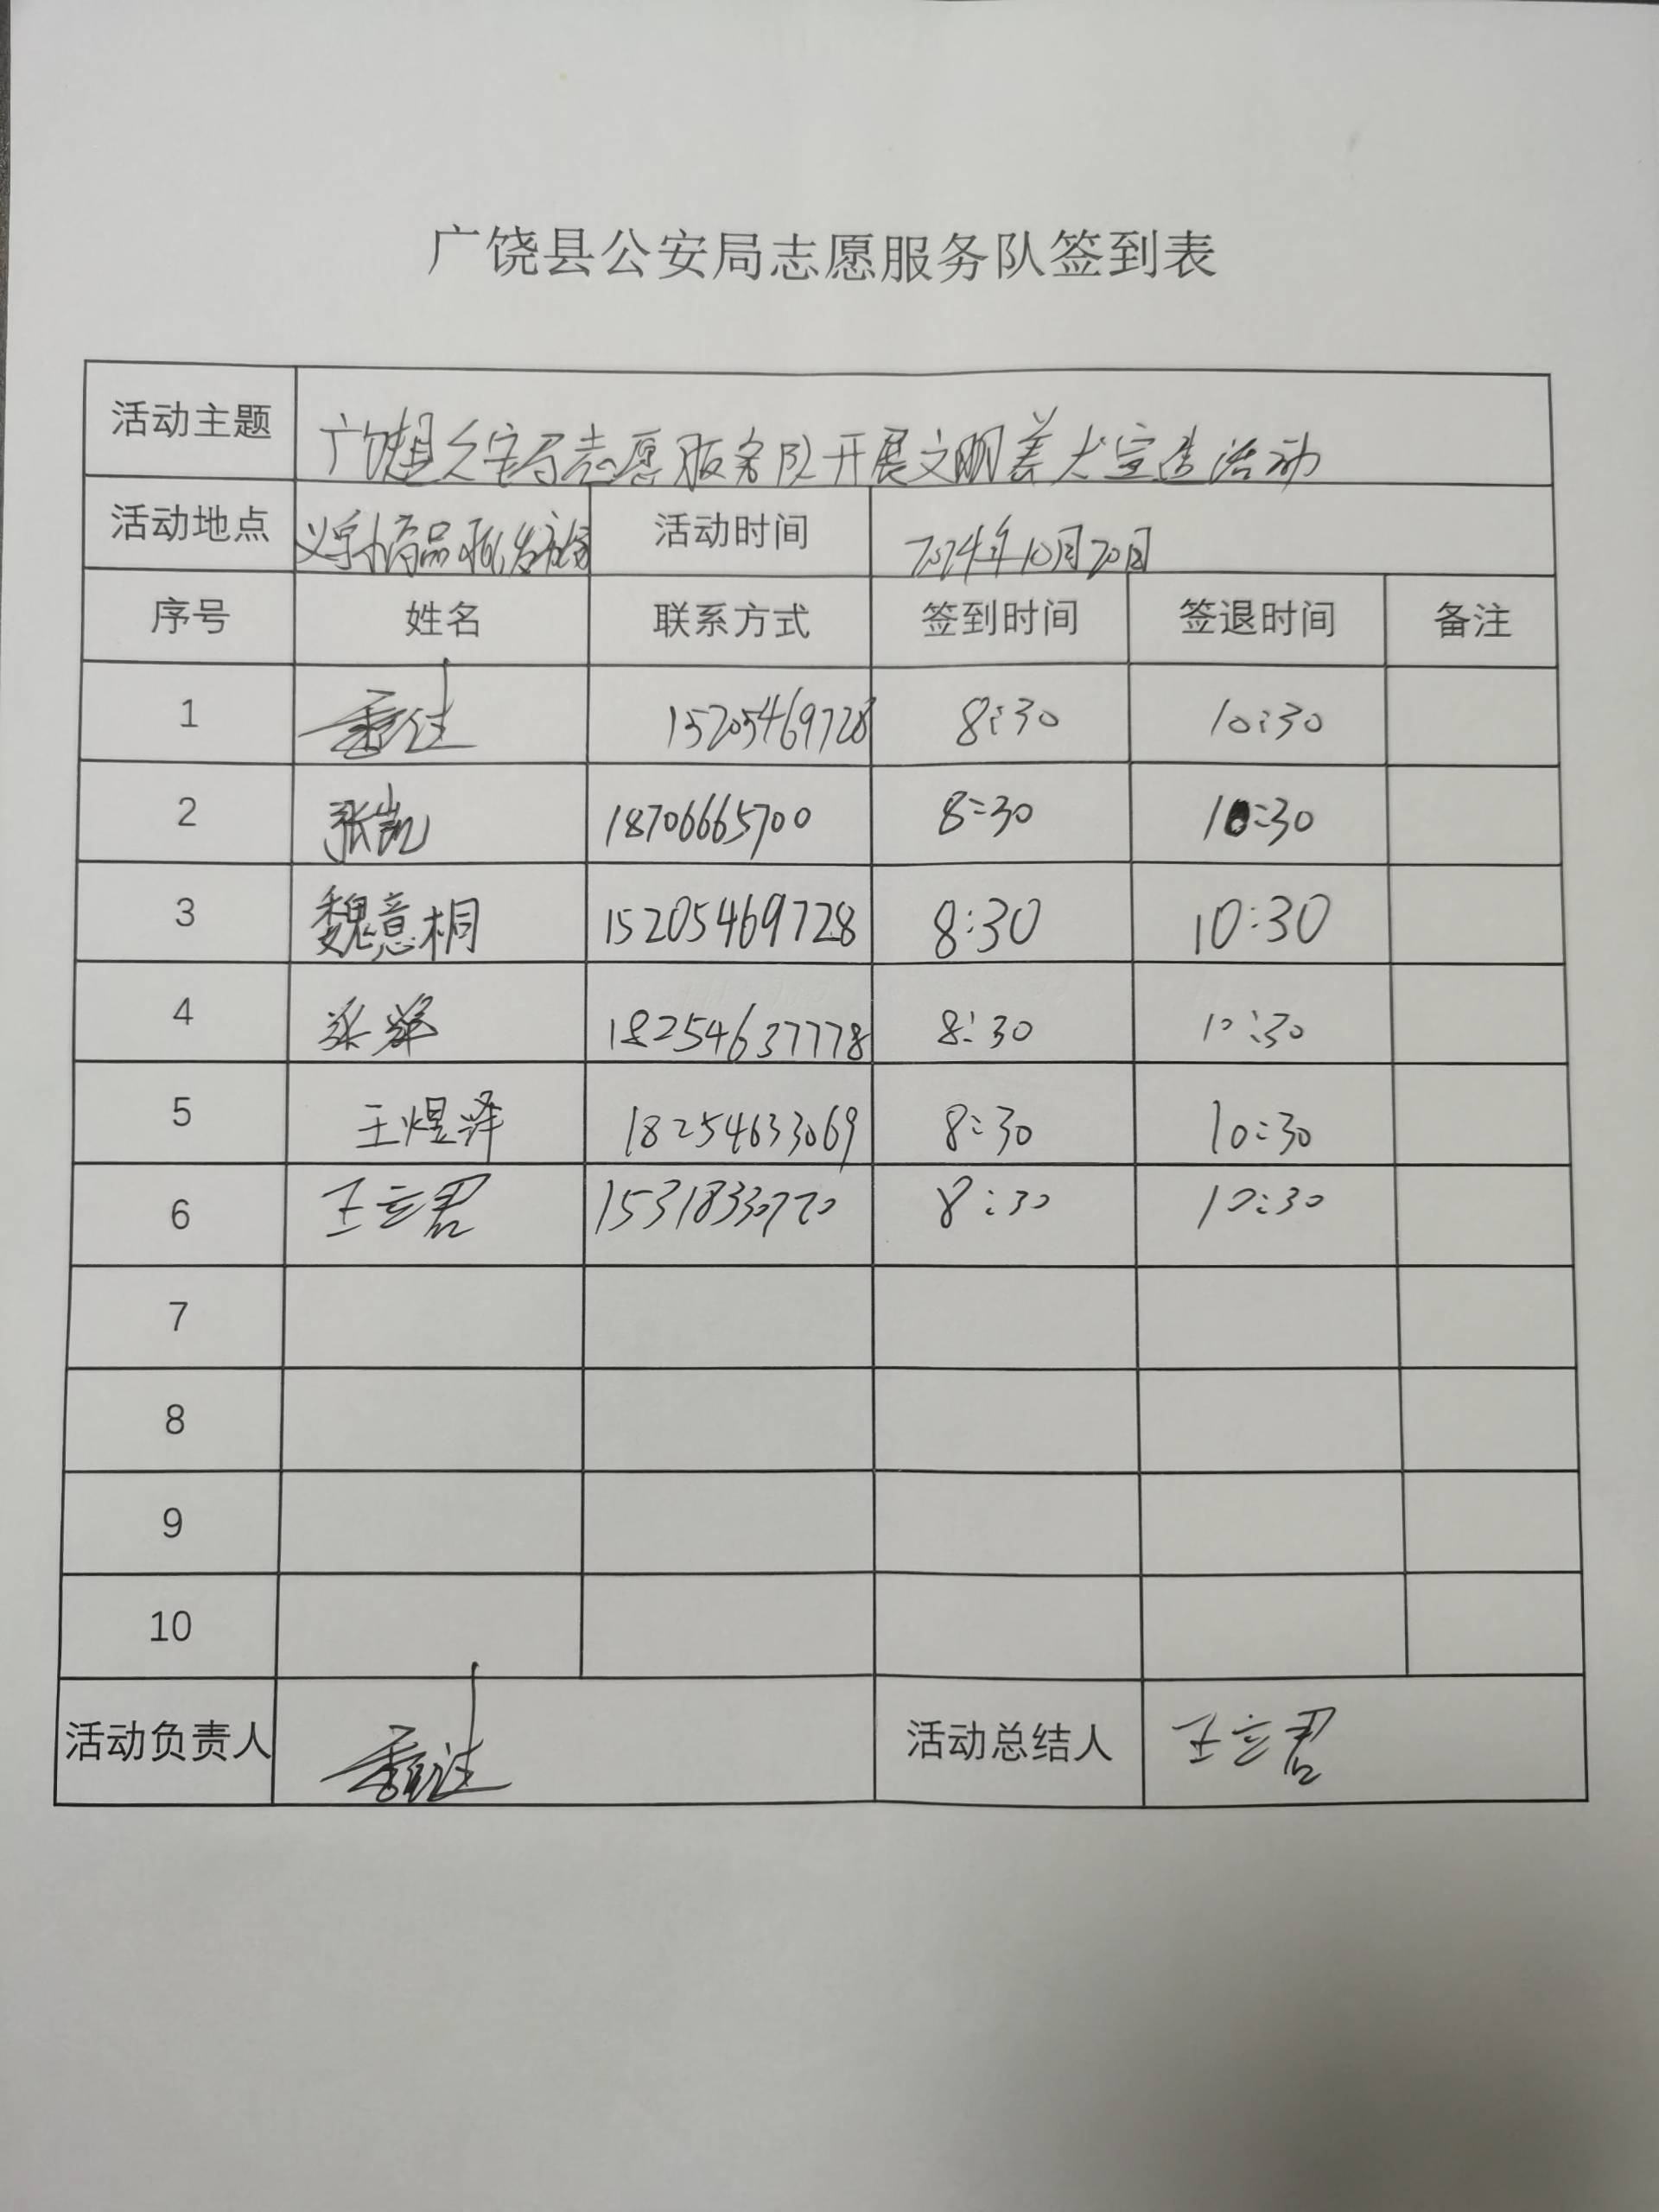 广饶县公安局志愿服务队签到表
活动主题 广饶县公安局志愿服务队开展文明养犬宣传活动
活动地点 义乌小商品批发 活动时间 2024年10月20日
序号 姓名 联系方式 签到时间 签退时间 备注
1 15205469728 8:30 10:30
2 张凯 18706665700 8:30 10:30
3 魏意桐 15205469728 8:30 10:30
4 18254637778 8:30 10:30
5 王煜泽 18254633069 8:30 10:30
6 王立君 15318330770 8:30 10:30
7
8
9
10
活动负责人 活动总结人 王立君